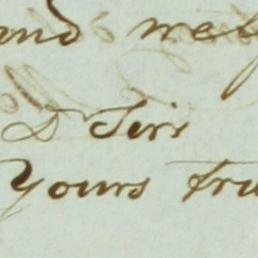 and
Dr Sir
Yours tru